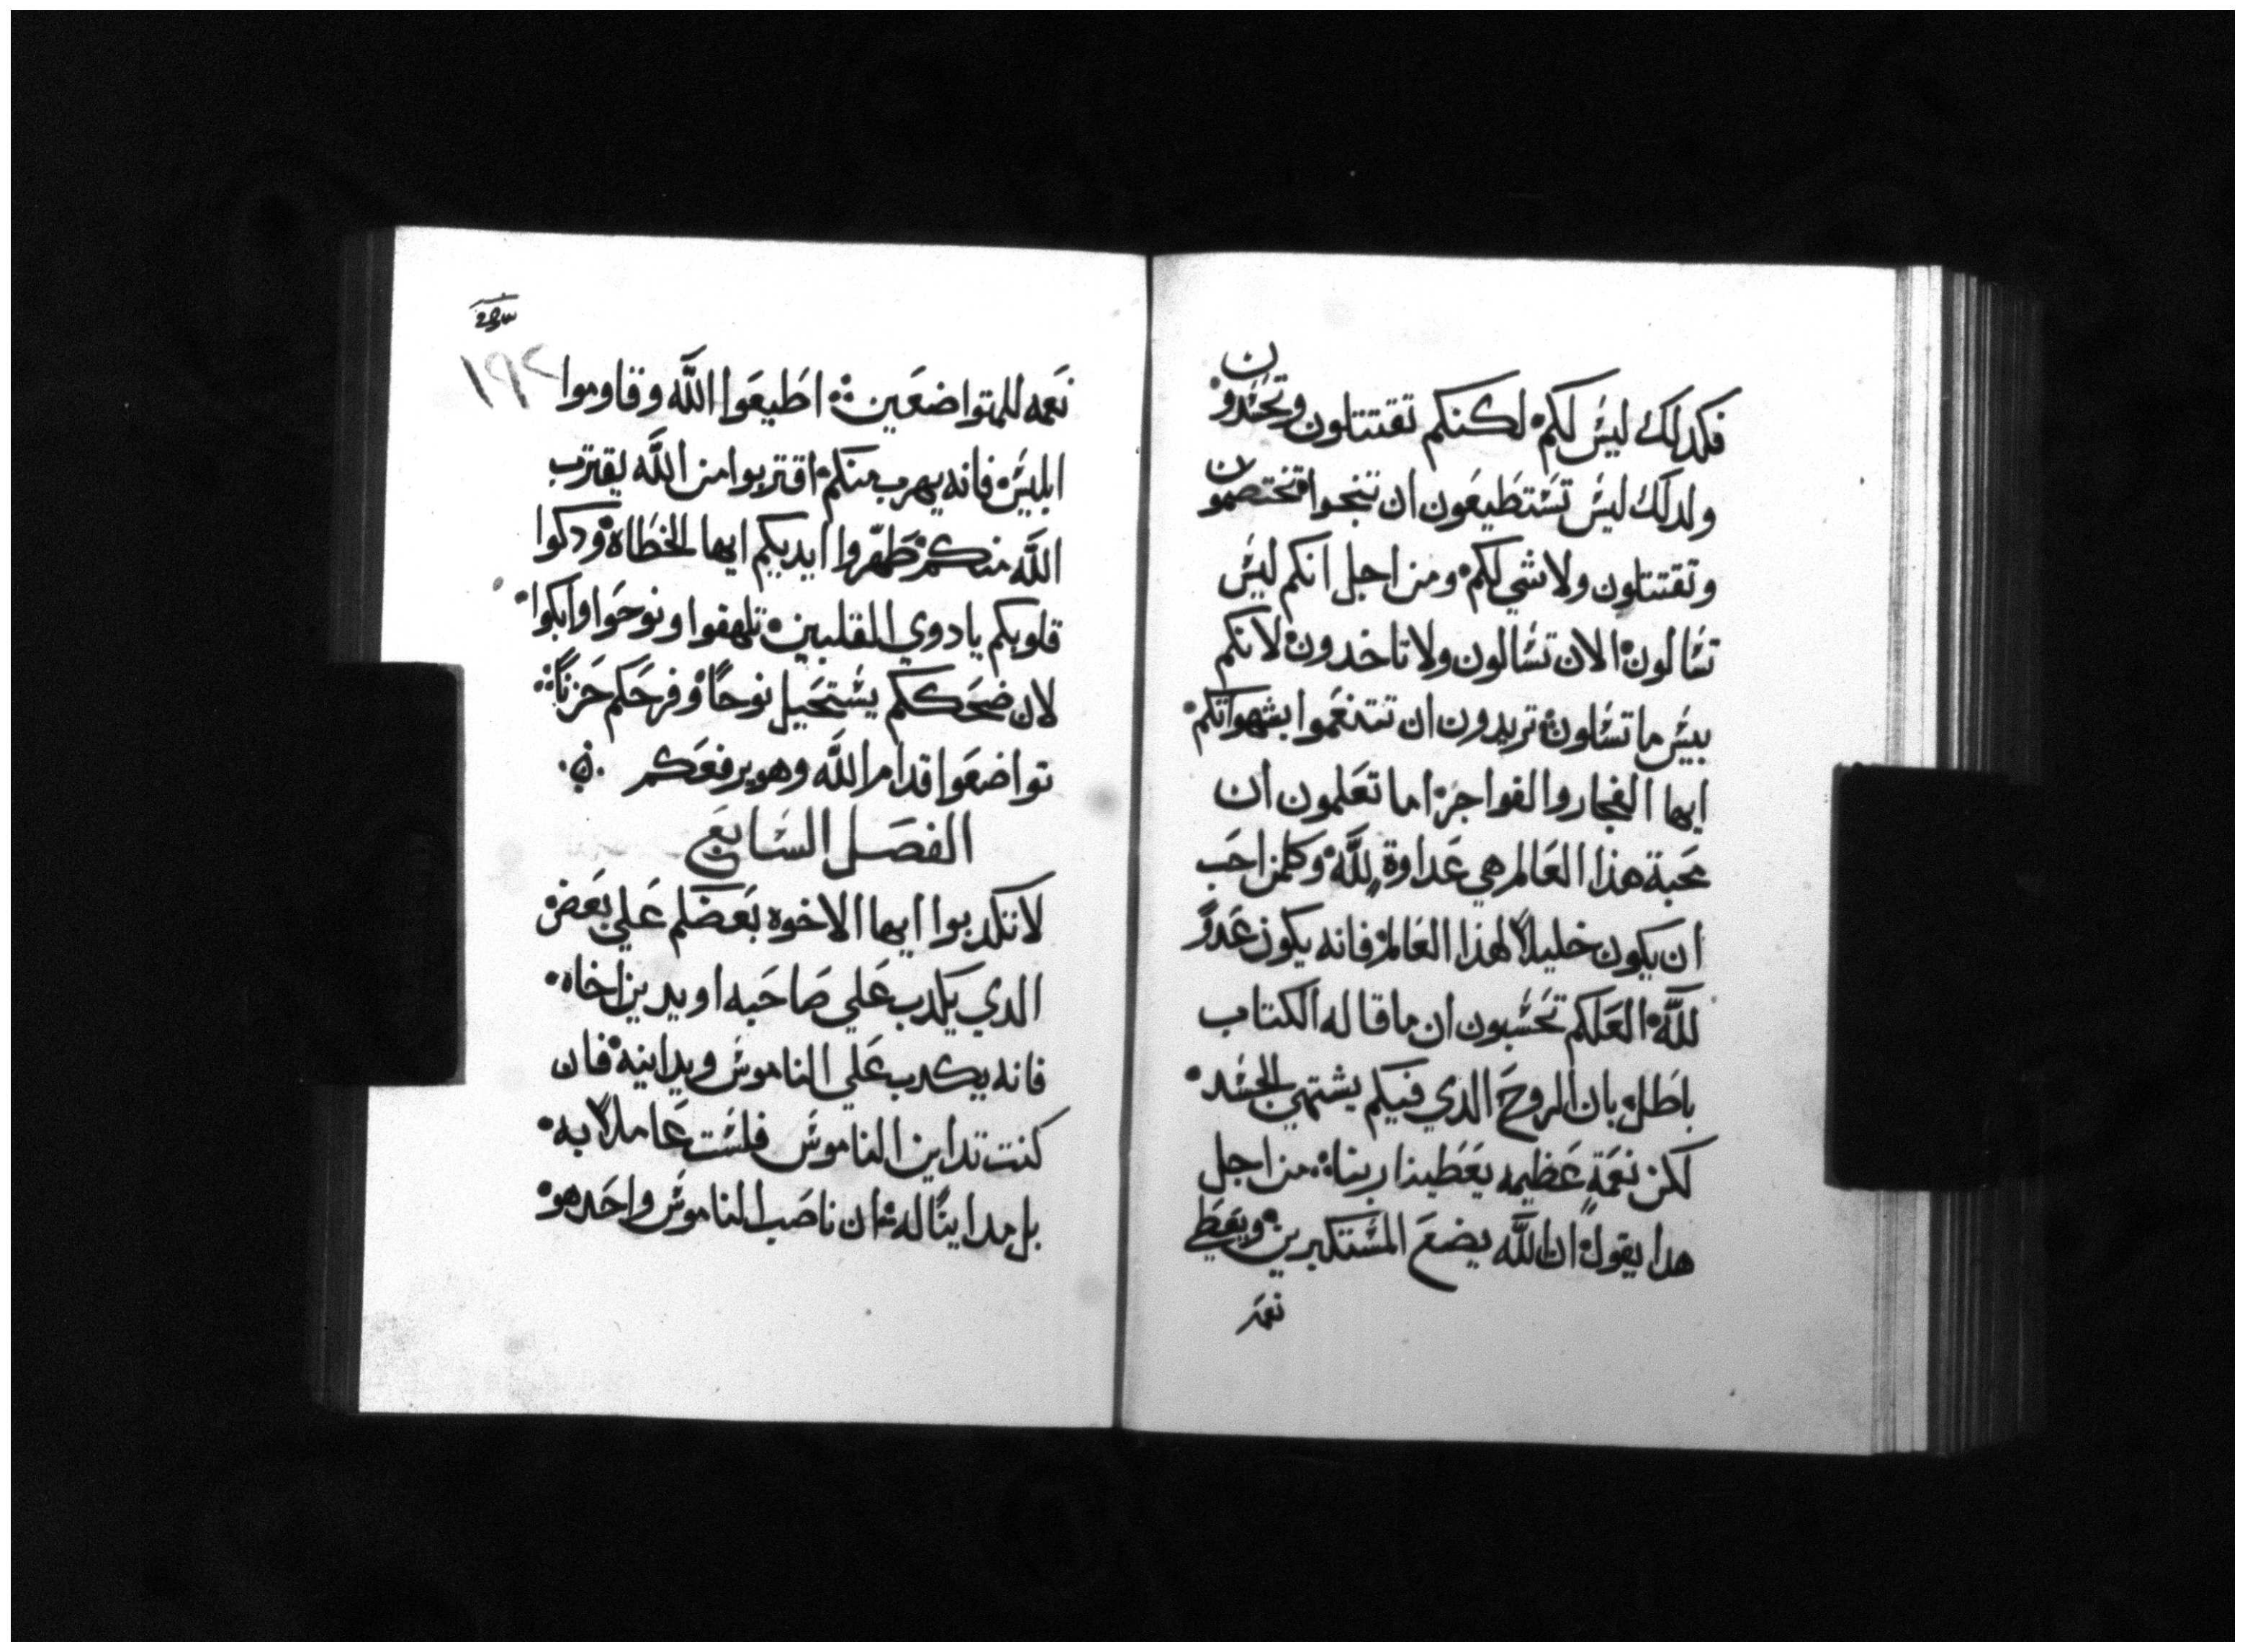 فكدلك ليس لكم لكنكم تقتتلون وتحسدون
ولدلك ليس تستطيعون ان تنجوا تختصمون
وتقتتلون ولا شي لكم ومن اجل انكم ليس
تسالون الان تسالون ولا تاخدون لانكم
بيس ما تسالون تريدون ان تتنعموا بشهواتكم
ايها الفجار والفواجر اما تعلمون ان
محبة هذا العالم هي عداوة لله وكلمن احب
ان يكون خليلاً لهذا العالم فانه يكون عدوً
لله العلكم تحسبون ان ما قاله الكتاب
باطل بان الروح الدي فيكم يشتهي الجسد
لكن نعمةٍ عظيمه يعطينا ربنا من اجل
هدا يقول ان الله يضع المستكبرين ويعطي
نعمه
١٩٢
نعمه للمتواضعين اطيعوا الله وقاوموا
ابليس فانه يهرب منكم اقتربوا من الله يقترب
الله منكم طهّروا ايديكم ايها الخطاة ودكوا
قلوبكم يا دوي القلبين تلهفوا ونوحوا وابكوا
لان ضحككم يستحيل نوحاً وفرحكم حزناً
تواضعوا قدام الله وهو يرفعكم
الفصل السابع
لا تكدبوا ايها الاخوه بعضكم علي بعض
الدي يكدب علي صاحبه او يدين اخاه
فانه يكدب علي الناموس ويداينه فان
كنت تداين الناموس فلست عاملاً به
بل مدايناً له ان ناصب الناموس واحد هو